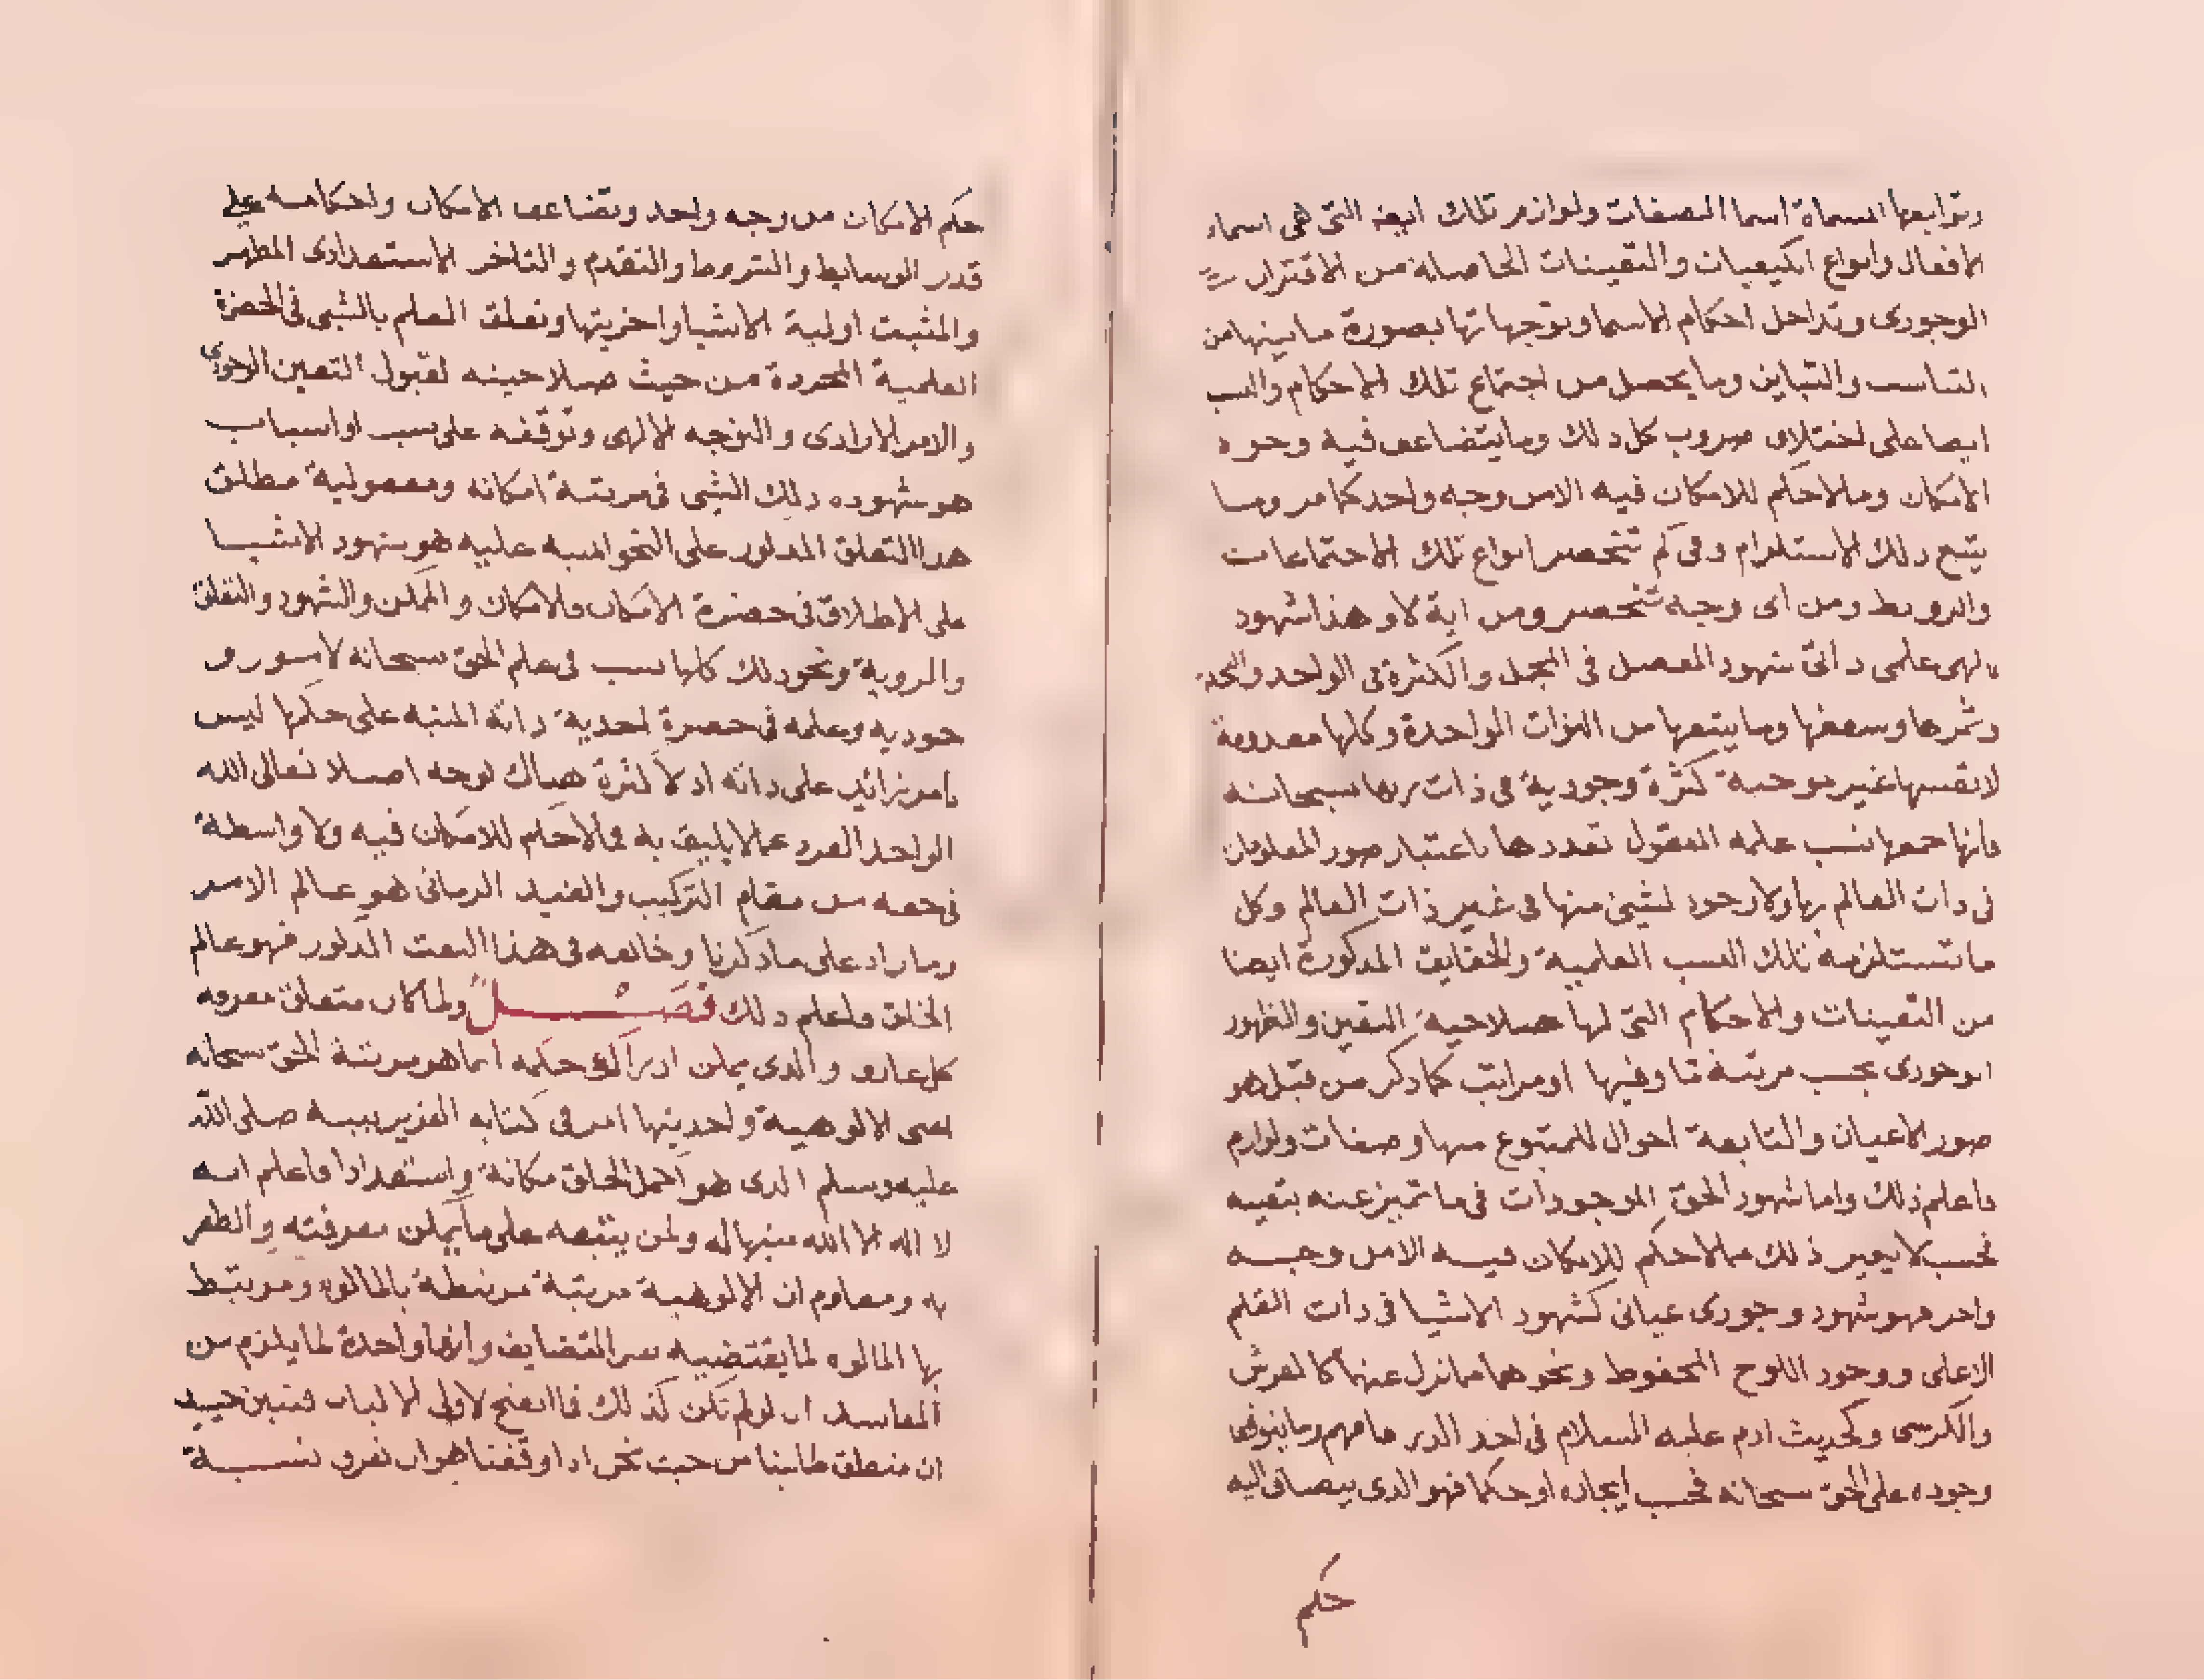 وتوابعها المسماة اسما الصفات ولوازم تلك ايضا التى هى اسماء
الافعال وانواع الكيفيات والتعينات الحاصلة من الاقتران
الوجودى وتداخل احكام الاسما وتوجهاتها بصورة ما بينها من
التناسب والتباين وما يحصل من اجتماع تلك الاحكام والنسب
ايضا على اختلاف ضروب كل ذلك وما يتضاعف فيه وجوه
الامكان وما لا حكم للامكان فيه الا من وجه واحد كما مر وما
يتبع ذلك الاستلزام وفى كم تنحصر انواع تلك الاجتماعات
ومن اى وجه تنحصر ومن اية لا وهذا شهود
الهى علمى ذاتى شهود المفصل فى المجمل والكثرة فى الواحد والنخلة
وثمرها وسعفها وما يتبعها من النواة الواحدة وكلها معدومة
لانفسها غير موجبة كثرة وجودية فى ذات ربها سبحانه
فانها جمعها نسب علمه المعقول تعددها باعتبار صور المعلومات
فى ذات العالم بها ولا وجود لشيئ منها فى غير ذات العالم وكل
ما تستلزمه تلك النسب العلمية والحقايق المذكورة ايضا
من التعينات والاحكام التى لها صلاحية التعين والظهور
الوجودى بحسب مرتبة ما وفيها او مراتب كما ذكر من قبل هو
صور الاعيان والتابعة احوال للمتبوع منها وصفات ولوازم
فاعلم ذلك واما شهود الحق الموجودات فى ما تميز عنه بتعينه
فحسب لا بغير ذلك مما لا حكم للامكان فيه الا من وجه
واحد فهو شهود وجودى عيانى كشهود الاشيا فى ذات القلم
الاعلى ووجود اللوح المحفوظ ونحوهما مما نزل عنهما كالعرش
والكرسى وكحديث ادم عليه السلام فى اخذ الذر وما يتوقف
وجوده على الحق سبحانه فحسب ايجادا وحكما فهو الذى يضاف اليه
حكم
حكم الامكان من وجه واحد وتضاعف الامكان واحكامه على
قدر الوسايط والشروط والتقدم والتاخر الاستعدادى المظهر
والمثبت اولية الاشيا واخريتها وتعلق العلم بالشى فى الحضرة
العلمية المجردة من حيث صلاحيته لقبول التعين الوجودى
والامر الارادى والتوجه الالهى وتوقفه على سبب او اسباب
هو شهوده ذلك الشى فى مرتبة امكانه ومعمولية مطلق
هذا التعلق المذكور على النحو المنبه عليه هو شهود الاشيا
على الاطلاق فى حضرة الامكان فالامكان والممكن والشهود والتعلق
والروية ونحو ذلك كلها نسب فى علم الحق سبحانه لا امور
وجودية وعلمه فى حضرة احدية ذاته المنبه على حكمها ليس
بامر زائد على ذاته اذ لا كثرة هناك بوجه اصلا تعالى الله
الواحد الفرد عما لا يليق به فما لا حكم للامكان فيه ولا واسطة
فى حقه من مقام التركيب والقيد الزمانى هو عالم الامر
وما زاد على ما ذكرنا وخالفه فى هذا النعت المذكور فهو عالم
الخلق فاعلم ذلك فصل ولما كان متعلق معرفة
كل عارف والذى يمكن ادراك حكمه انما هو مرتبة الحق سبحانه
اعنى الالوهية واحديتها امر فى كتابه العزيز نبيه صلى الله
عليه وسلم الذى هو اكمل الخلق مكانة واستعدادا فاعلم انه
لا اله الا الله منبها له ولمن يتبعه على ما يمكن معرفته والظفر
به ومعلوم ان الالوهية مرتبة مرتبطة بالمالوه ومرتبط
بها المالوه لما يقتضيه سر المتضايف وانها واحدة لما يلزم من
المفاسد ان لو لم تكن كذلك فاتضح لاولى الالباب فتبين حينئذ
ان متعلق طلبنا من حيث نحن اذا وقفنا هو ان نعرف نسبة